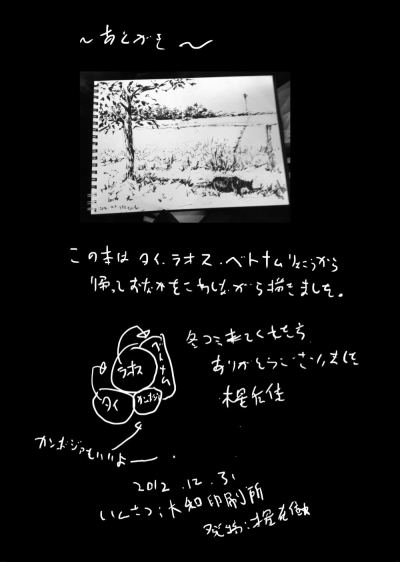 ～あとがき～
この本は タイ、ラオス、ベトナムりょこうから
帰っておなかをこわしながら描きました。
冬コミ来てくれた方
ありがとうございました
ラオス
ベトナム
タイ
カンボジ
カンボジアもいいよ
2012.12.31
いんさつ:大知印刷所
発行: